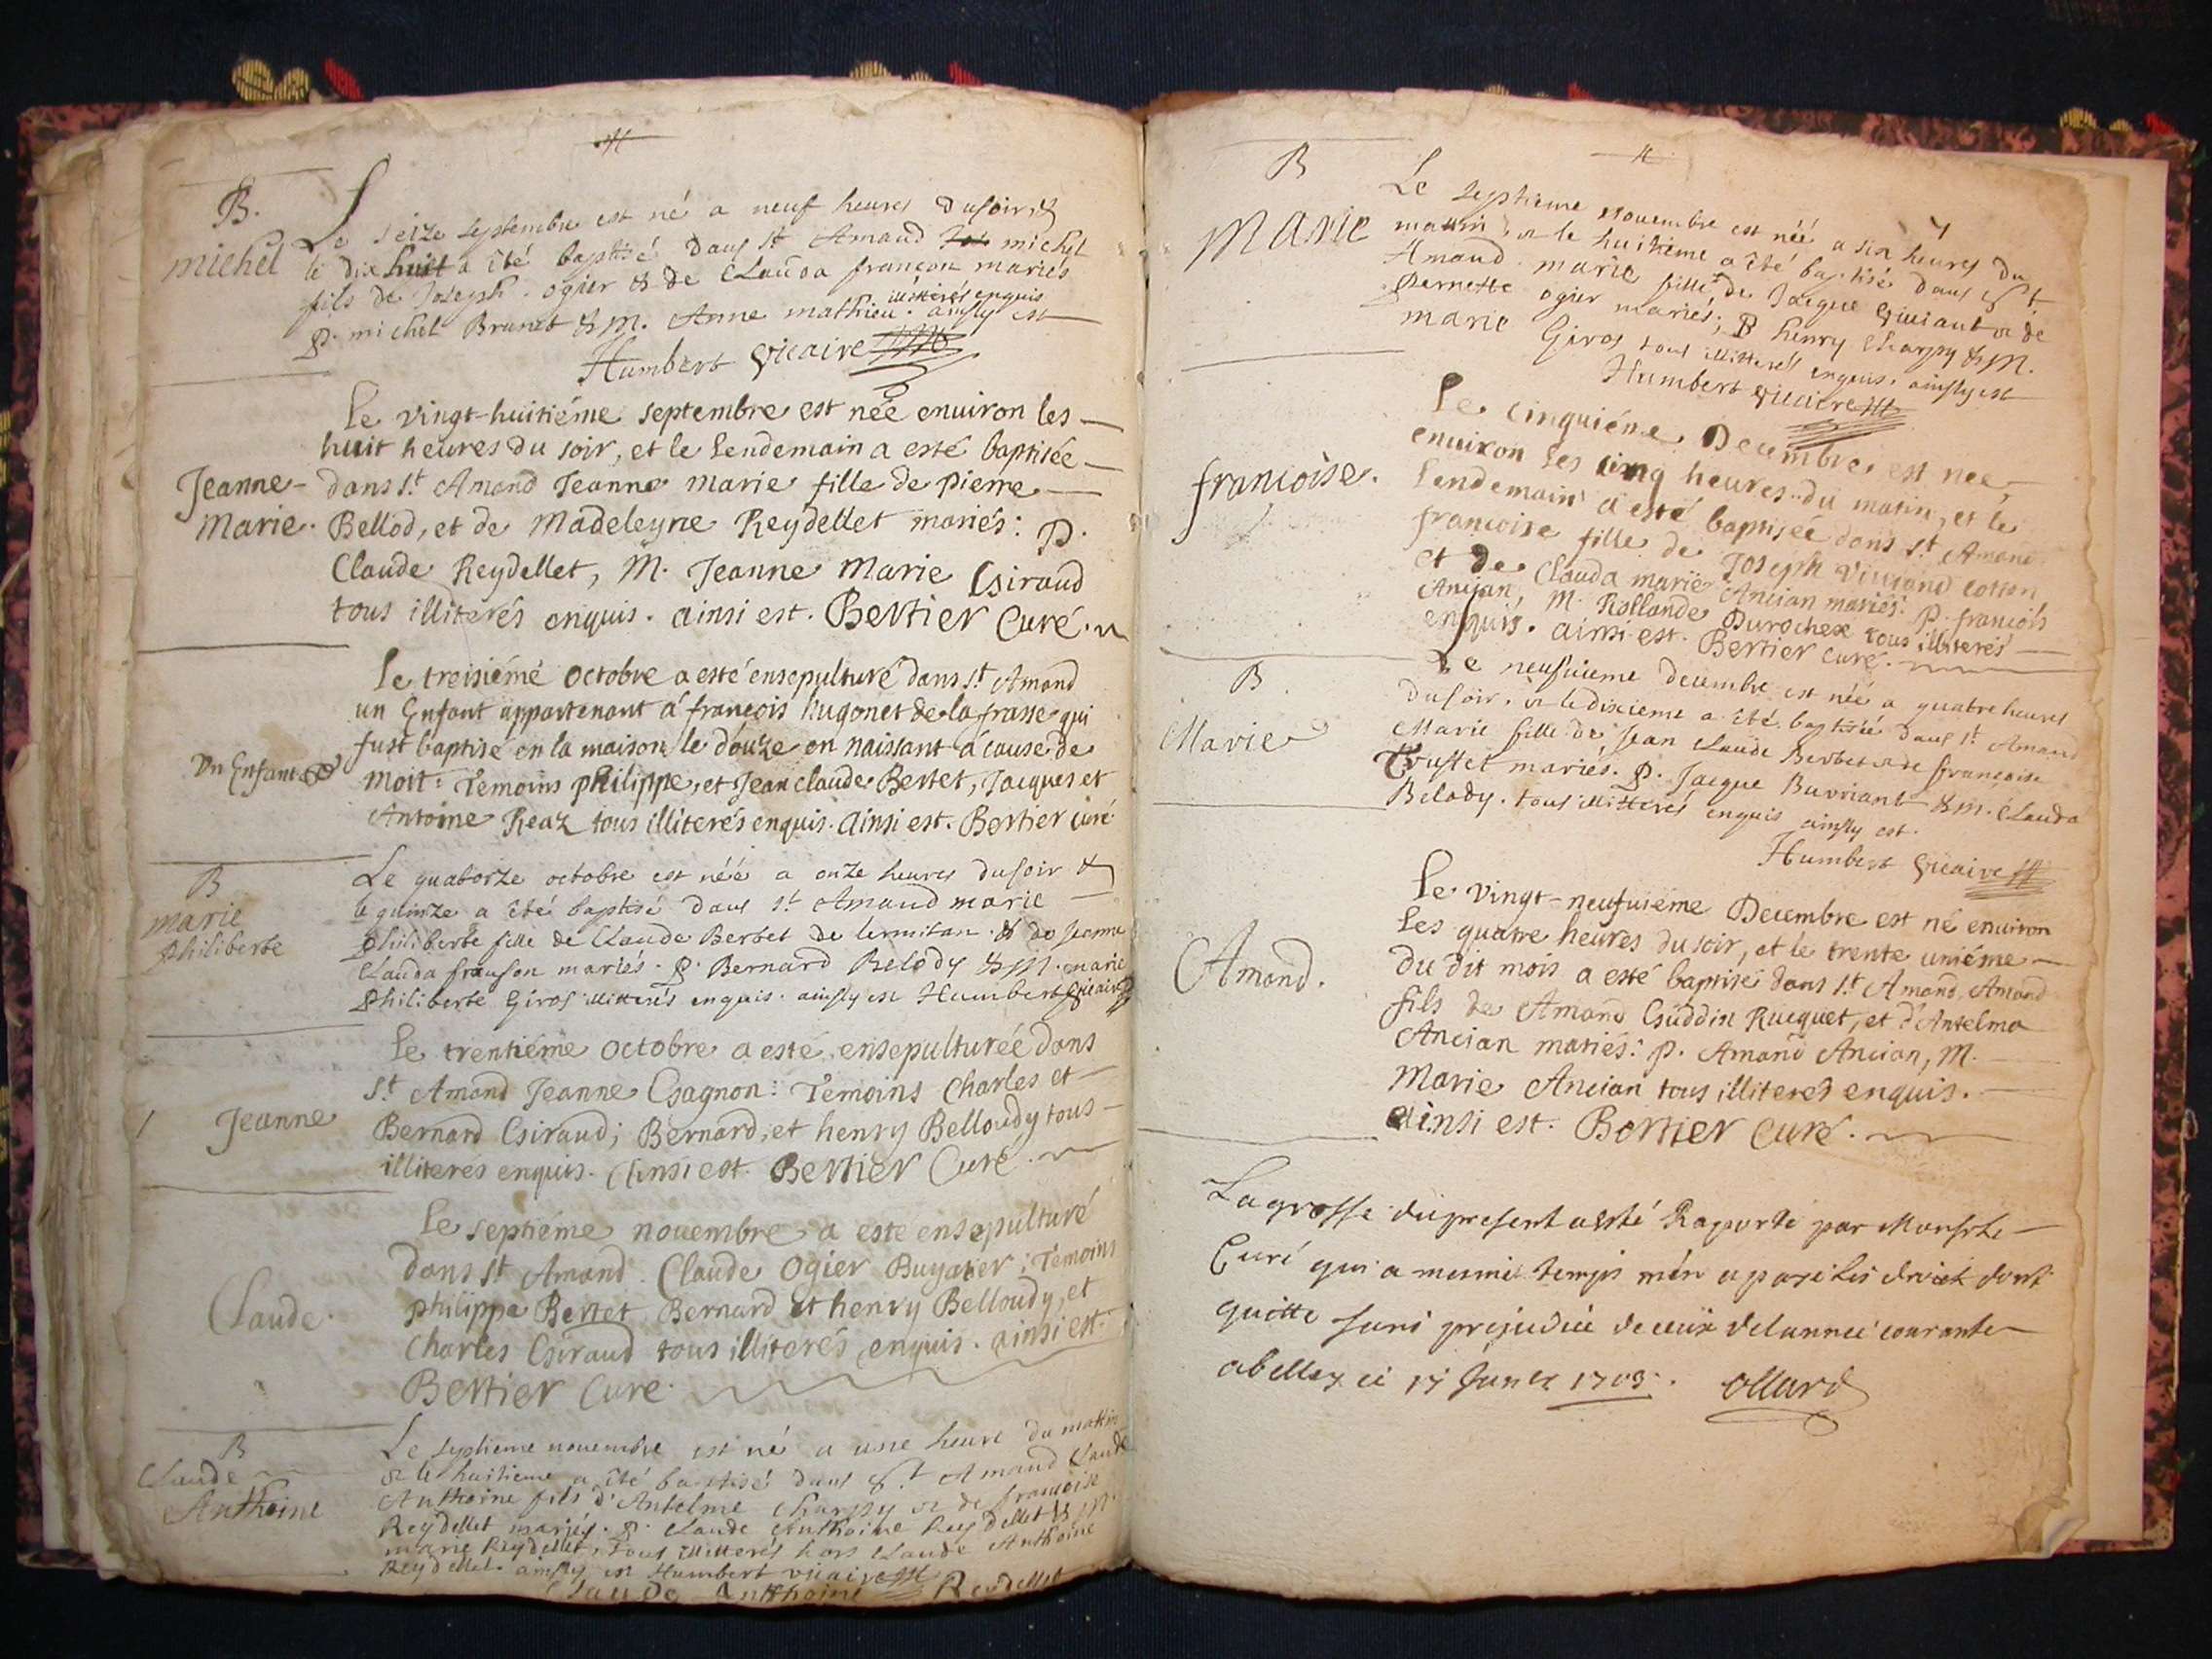 B.
michel
Le seize septembre est né a neuf heures du soir, &
le dix huit a été baptisé dans st Amand michel
fils de Joseph ogier & de Clauda françon mariés
p. michel Brunet & M. Anne mathieu. illitterés enquis ainsy est
Humbert vicaire
Jeanne-
Marie.
le vingt-huitiéme septembre est née enuiron les
huit heures du soir, et le lendemain a esté baptisée
dans s.t Amand Jeanne marie fille de pierre
Bellod, et de Madeleyne Reydellet mariés: p.
Claude Reydellet, M. Jeanne Marie Giraud
tous illiterés enquis. ainsi est. Bertier Curé.
Un Enfant
le treisiéme octobre a esté ensepulturé dans s.t Amand
un Enfant appartenant á françois hugonet de la frasse qui
fust baptisé en la maison le douze en naissant á cause de
mort: Témoins philippe, et Jean claude Bertet, Jacques et
Antoine Reaz tous illiterés enquis. ainsi est. Bertier curé
B
marie
philiberte
Le quatorze octobre est néé a onze heures du soir &
le quinze a été baptisé dans st Amand marie
philiberte fille de Claude Berbet de lermitan & de Jeanne
Clauda franson mariés. p. Bernard Belody & M. marie
philiberte Giros illitterés enquis. ainsy est Humbert vicaire
Jeanne
le trentiéme octobre a esté ensepulturée dans
s.t Amand Jeanne Gagnon: Témoins Charles et
Bernard Giraud; Bernard, et henry Belloudy tous
illiterés enquis. Ainsi est. Bertier Curé.
Claude.
le septiéme nouembre a esté ensepulturé
dans s.t Amand. Claude Ogier Buyatier; Témoins
philippe Bertet, Bernard et henry Belloudy, et
Charles Giraud tous illiterés enquis. ainsi est.
Bertier Curé.
B
Claude
Anthoine
Le septieme nouembre est né a une heure du mattin
& le huitieme a été baptisé dans st Amand Claude
Anthoine fils d'Antelme Charpy & de françoise
Reydellet mariés. p. Claude Anthoine Reydellet & M.
marie Reydellet, tous illitterés hors Claude Anthoine
Reydellet. ainsy est Humbert vicaire
Claude Anthoine Reydellet
B
Marie
Le septieme nouembre est néé a six heures du
mattin, & le huitieme a été baptisé dans st
Amand marie fille de Jacque Guiant & de
pernette ogier mariés; p henry Charpy & M.
marie Giros tous illitterés enquis, ainsy est
Humbert vicaire
françoise.
le cinquiéme Decembre est nee,
enuiron les cinq heures du matin, et le
lendemain a esté baptisée dans s.t Amand
françoise fille de Joseph cotton
et de Clauda marie Ancian mariés: p. françois
Ancian, M. Rollande Durochex tous illiterés
enquis. ainsi est. Bertier curé.
B
Marie
Le neufuieme decembre est néé a quatre heures
du soir, & le dixieme a été baptisée dans st Amand
Marie fille de Jean Claude Berbet & de françoise
Trustet mariés. p. Jacque Buvriant & M. Clauda
Belody. tous illitterés enquis ainsy est.
Humbert vicaire
Amand.
le vingt-neufuieme Decembre est né enuiron
les quatre heures du soir, et le trente uniéme
du dit mois a esté baptisé dans s.t Amand, Amand
fils de Amand Guddin Rucquet, et d'Antelma
Ancian mariés: p. Amand Ancian, M.
Marie Ancian tous illiterés enquis.
ainsi est. Bertier Curé.
La grosse du present a esté Raporté par Monsr le
Curé qui a mesme temps men a payé les droict dont
quitte sans prejudice de ceux de lannee courante
a belley ce 17 Janer 1703. Ollard